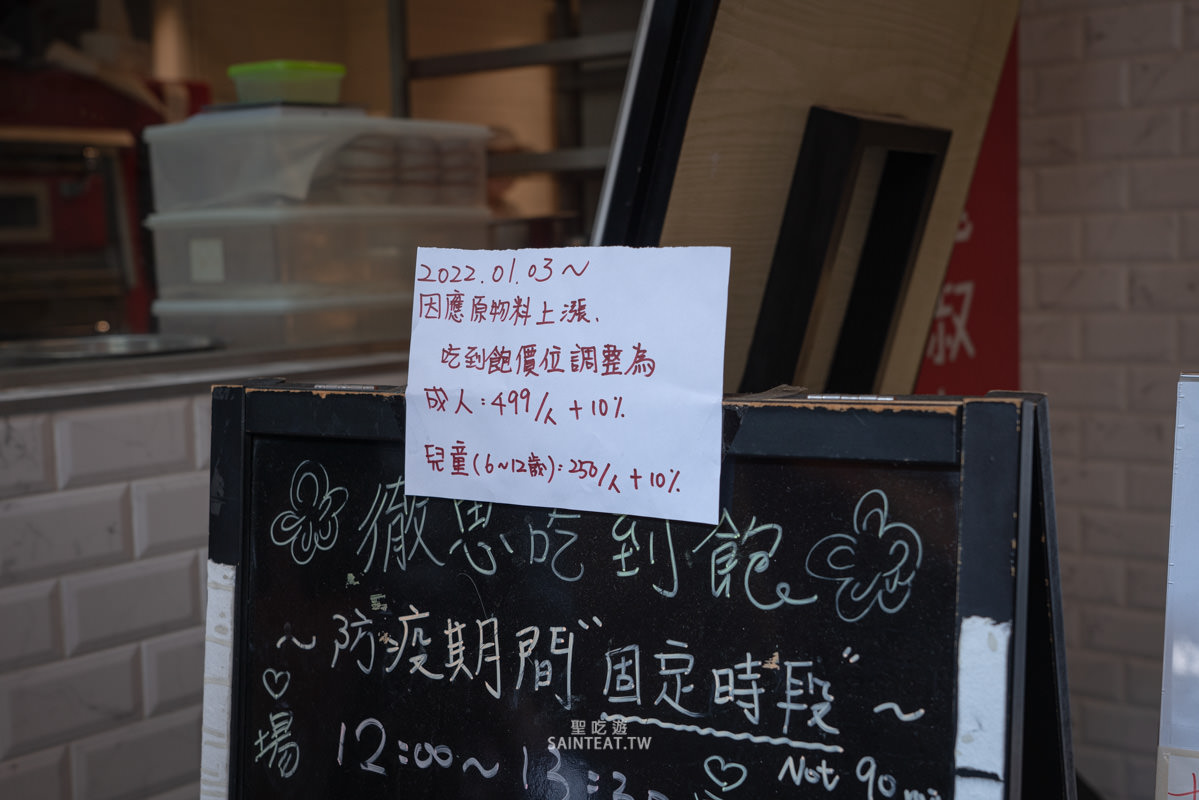 2022.01.03~
因應原物料上漲、
吃到飽價位調整為
成人:499/人+10%
兒童(6~12歲):250/人+10%
徹思吃到飽
~防疫期間"固定時段"~
場 12:00~13:30
Not 90
聖吃遊
SAINTEAT.TW